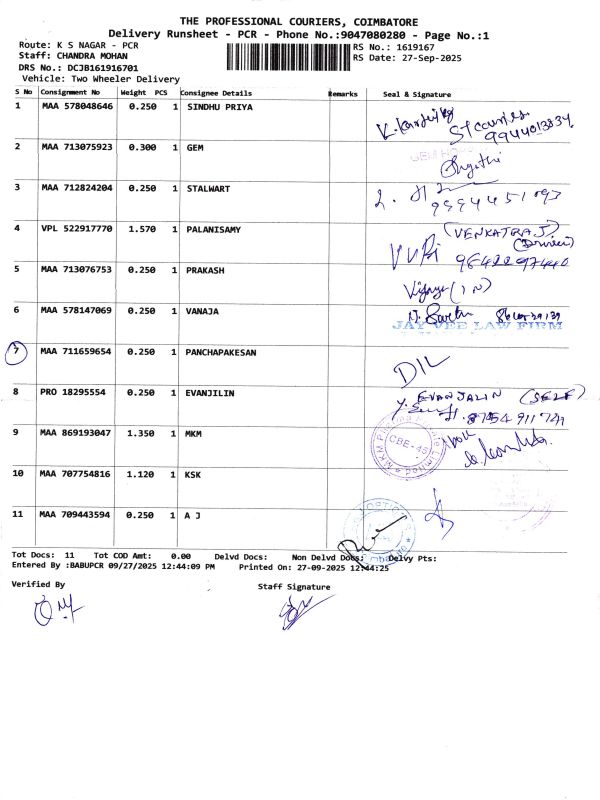 THE PROFESSIONAL COURIERS, COIMBATORE
Delivery Runsheet - PCR - Phone No.:9047080280 - Page No.:1
Route: K S NAGAR - PCR RS No.: 1619167
Staff: CHANDRA MOHAN RS Date: 27-Sep-2025
DRS No.: DCJB161916701
Vehicle: Two Wheeler Delivery
S No Consignment No Weight PCS Consignee Details Remarks Seal & Signature
1 MAA 578048646 0.250 1 SINDHU PRIYA
ST couries
9944013334
2 MAA 713075923 0.300 1 GEM
3 MAA 712824204 0.250 1 STALWART
9994451093
4 VPL 522917770 1.570 1 PALANISAMY (VENKATRAJ)
(Driver)
5 MAA 713076753 0.250 1 PRAKASH
6 MAA 578147069 0.250 1 VANAJA
JAY VEE LAW FIRM
7 MAA 711659654 0.250 1 PANCHAPAKESAN
DIL
8 PRO 18295554 0.250 1 EVANJILIN EVANJALIN (SELF)
9 MAA 869193047 1.350 1 MKM
CBE-45
10 MAA 707754816 1.120 1 KSK
11 MAA 709443594 0.250 1 A J
Tot Docs: 11 Tot COD Amt: 0.00 Delvd Docs: Non Delvd Docs: Delvy Pts:
Entered By :BABUPCR 09/27/2025 12:44:09 PM Printed On: 27-09-2025 12:44:25
Verified By Staff Signature